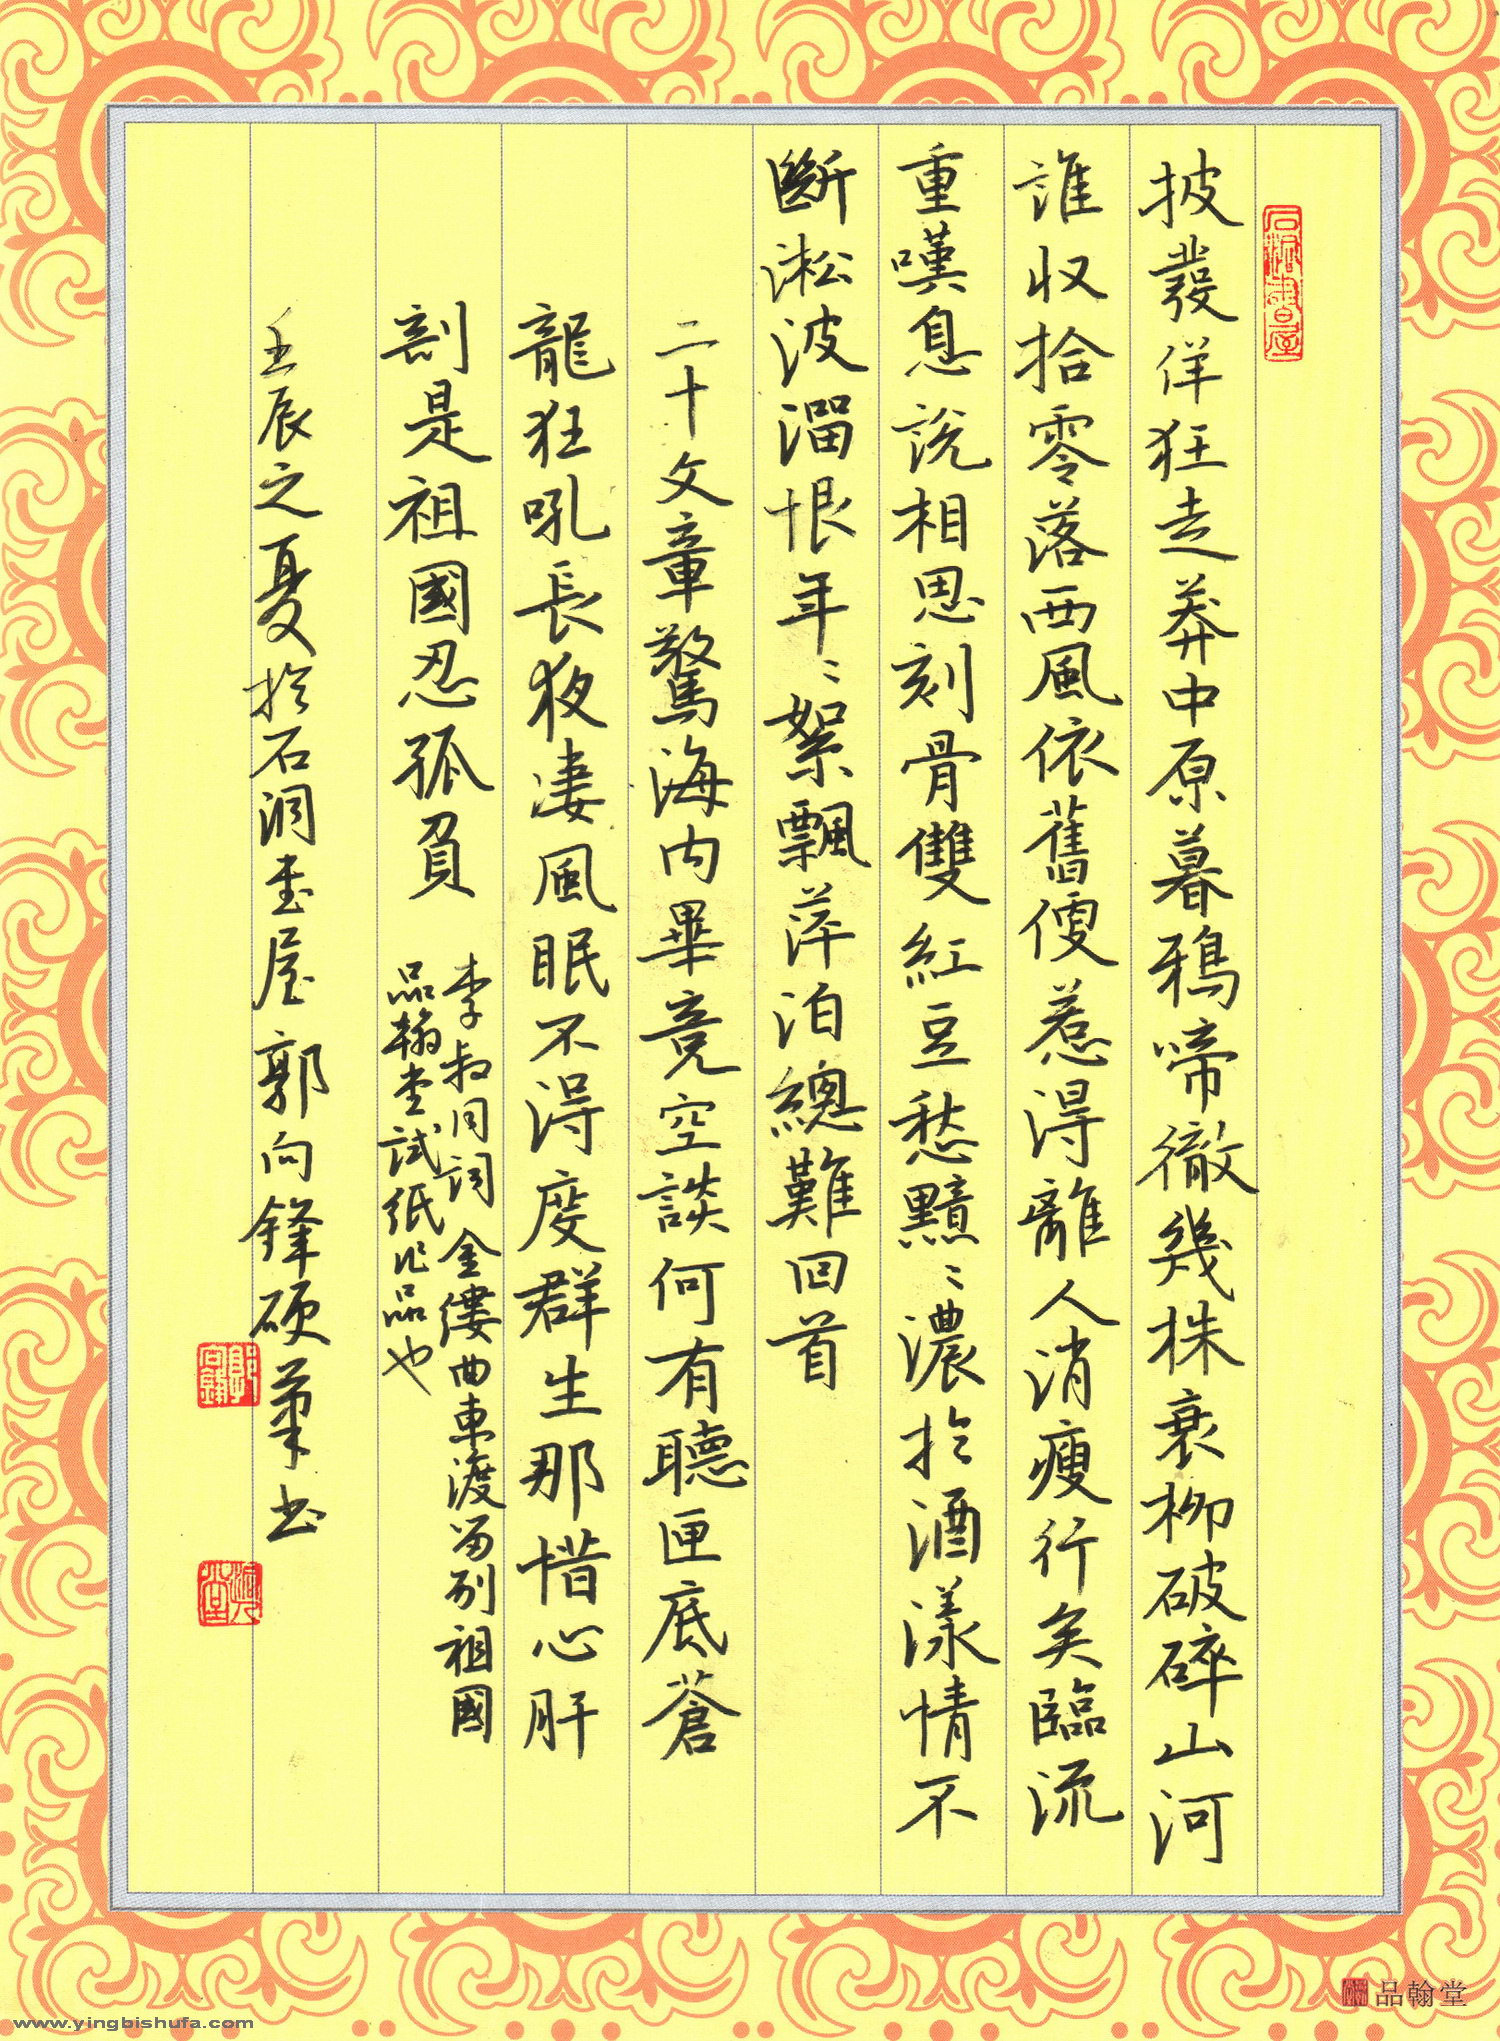 披發佯狂走莽中原暮鴉啼徹幾株衰柳破碎山河
誰收拾零落西風依舊便惹得離人消瘦行矣臨流
重嘆息説相思刻骨雙紅豆愁黯〻濃於酒漾情不
斷淞波溜恨年〻絮飄萍泊總難回首
二十文章驚海内畢竟空談何有聽匣底蒼
龍狂吼長夜凄風眠不得度群生那惜心肝
剖是祖國忍孤負
李叔同詞 金縷曲東渡留别祖國
品翰堂試紙作品也
壬辰之夏於石洞書屋郭向鋒硬筆書
品翰堂
www.yingbishufa.com